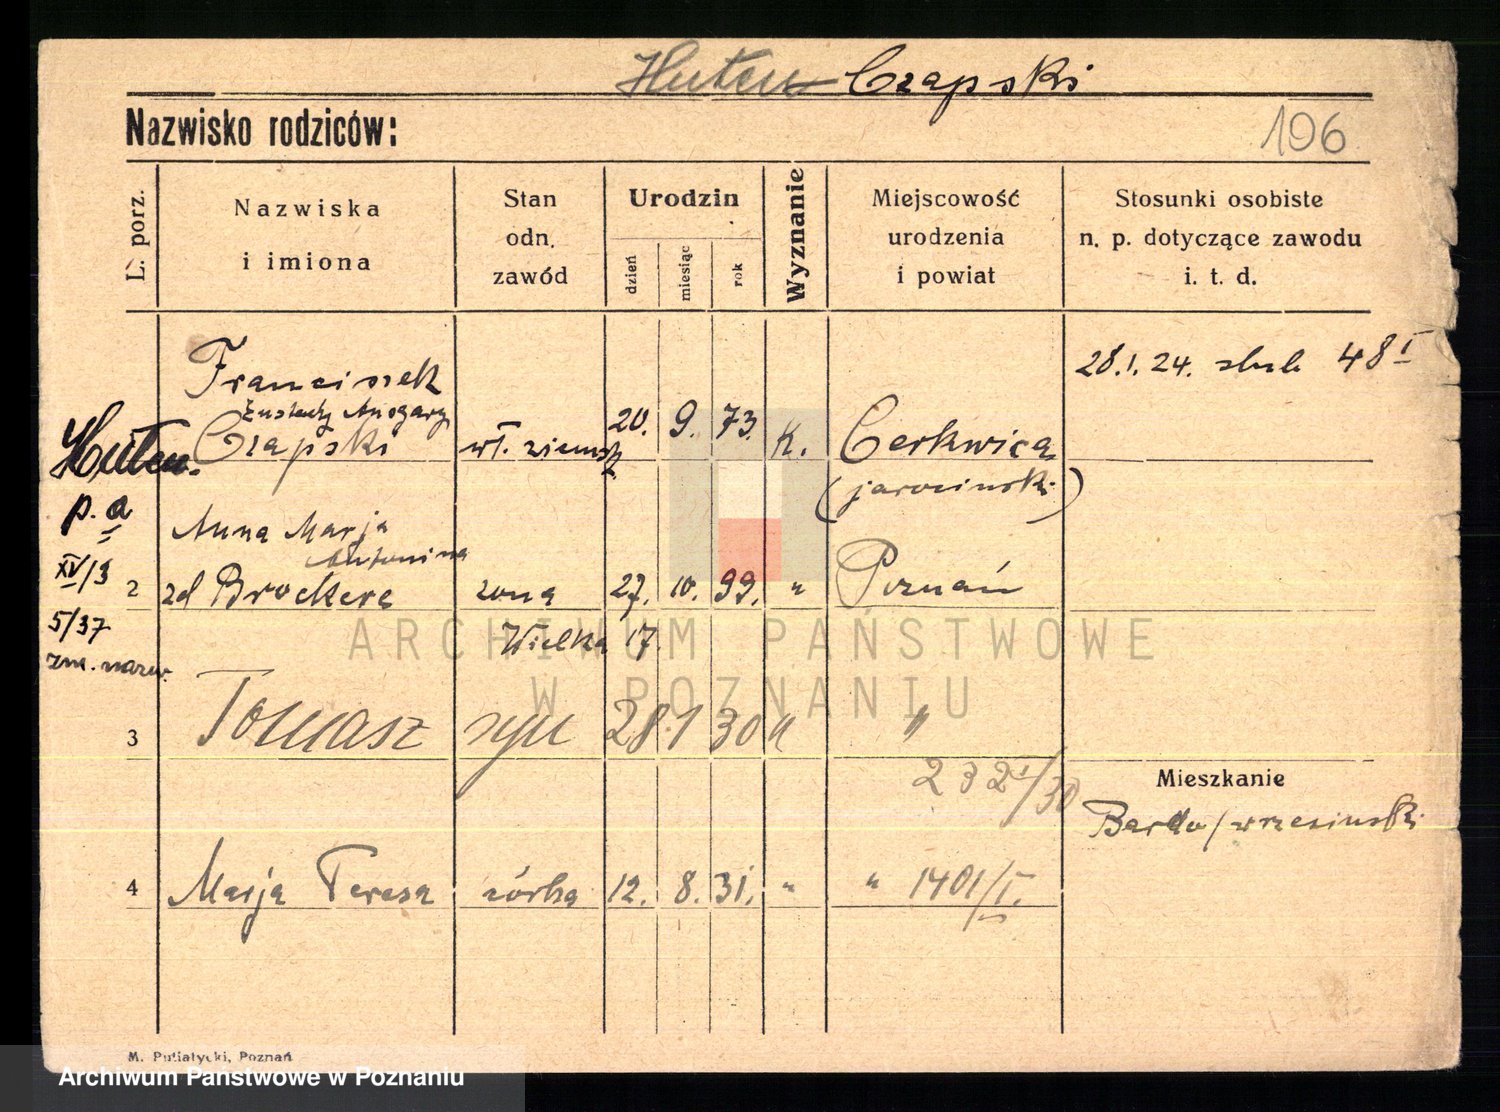 Huten Czapski
Nazwisko rodziców:
106
L. porz.
Nazwiska
i imiona
Stan
odn.
zawód
Urodzin
dzień
miesiąc
rok
Wyznanie
Miejscowość
urodzenia
i powiat
Stosunki osobiste
n. p. dotyczące zawodu
i. t. d.
28.1.24. slub 48 I
Franciszek
Eustachy Ansgary
Huten. Czapski wł. ziemsk 20. 9. 73. K. Cerkwica
(jarociński)
p. a
XV/3
5/37
zm. nazw.
Anna Marja
Antonina
2 zd Brockere żona 27. 10. 99. " Poznań
Wielka 17.
3 Tomasz syn 28 1 30 " "
232 I/30
Mieszkanie
Bardo/wrzesiński
4 Marja Teresa córka 12. 8. 31. " " 1401/I.
M. Putiatycki, Poznań
ARCHIWUM PAŃSTWOWE
W POZNANIU
Archiwum Państwowe w Poznaniu